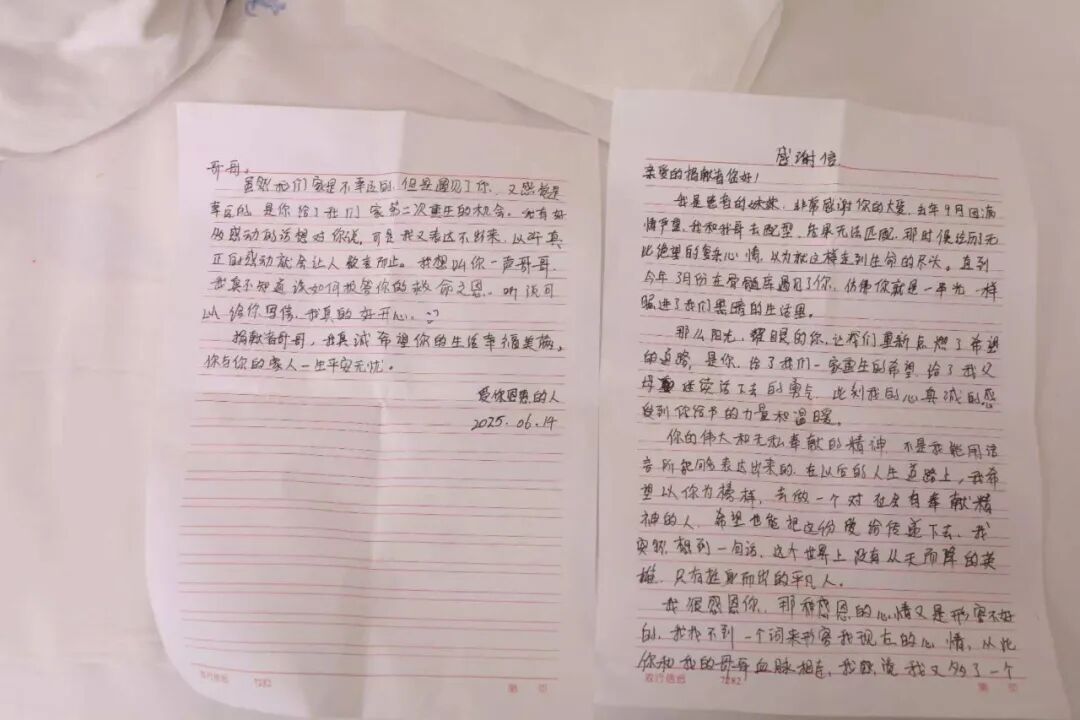 感谢信
亲爱的捐献者您好！
我是患者的妹妹，非常感谢你的大爱，去年9月因病
情严重，我和我哥去配型，结果无法匹配，那时候经历无
比绝望的复杂心情，以为就这样走到生命的尽头。直到
今年3月份在骨髓库遇见了你，仿佛你就是一束光一样
照进了我们黑暗的生活里。
那么阳光，耀眼的你，让我们重新点燃了希望
的道路，是你，给了我们一家重生的希望，给了我父
母 继续活下去的勇气，此刻我的心真诚的感
受到你给予的力量和温暖。
你的伟大和无私奉献的精神，不是我能用语
言所能够表达出来的，在以后的人生道路上，我希
望以你为榜样，去做一个对社会有奉献精
神的人，希望也能把这份爱给传递下去，我
突然想到一句话，这个世界上没有从天而降的英
雄，只有挺身而出的平凡人。
我很感恩你，那种感恩的心情又是形容不好
的，我找不到一个词来形容我现在的心情，从此
你和我的哥哥血脉相连，我 说我又多了一个
农行信纸 7282 第 页
哥哥。
虽然我们家是不幸运的，但是遇见了你，又感觉是
幸运的，是你给了我们家第二次重生的机会。我有好
多感动的话想对你说，可是我又表达不出来，以前真
正的感动就会让人 而止。我想叫你一声哥哥，
我真不知道该如何报答你的救命之恩。听说可
以给你写信，我真的好开心。
捐献者哥哥，我真诚希望你的生活幸福美满。
你与你的家人一生平安无忧。
受你恩惠的人
2025.06.14
农行信纸 7282 第 页